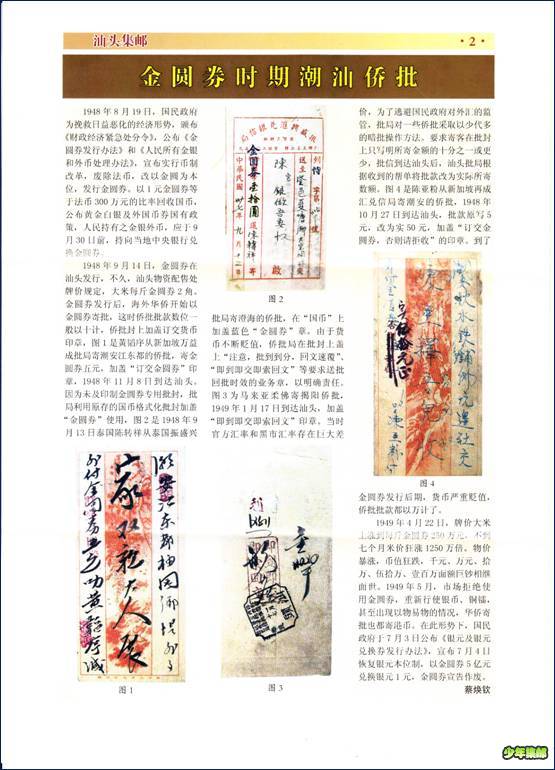 汕头集邮
·2·
金圆券时期潮汕侨批
1948年8月19日，国民政府
为挽救日益恶化的经济形势，颁布
《财政经济紧急处分令》，公布《金
圆券发行办法》和《人民所有金银
和外币处理办法》，宣布实行币制
改革，废除法币，改以金圆为本
位，发行金圆券。以1元金圆券等
于法币300万元的比率回收国币，
公布黄金白银及外国币券国有政
策，人民持有之金银外币，应于9
月30日前，持向当地中央银行兑
换金圆券。
1948年9月14日，金圆券在
汕头发行，不久，汕头物资配售处
牌价规定，大米每斤金圆券2角。
金圆券发行后，海外华侨开始以
金圆券寄批，这时侨批批款数位一
般以十计，侨批封上盖订交货币
印章，图1是黄韬序从新加坡万益
成批局寄潮安江东都的侨批，寄金
圆券五元，加盖“订交金圆券”印
章，1948年11月8日到达汕头。
因为未及印制金圆券专用批封，批
局利用原存的国币格式化批封加盖
“金圆券”使用，图2是1948年9
月13日泰国陈转祥从泰国振盛兴
图2
批局寄澄海的侨批，在“国币”上
加盖蓝色“金圆券”章。由于货
币不断贬值，侨批局在批封上盖
上“注意，批到到分，回文速覆”、
“即到即交即索回文”等要求送批
回批时效的业务章，以明确责任。
图3为马来亚柔佛寄揭阳侨批，
1949年1月17日到达汕头，加盖
“即到即交即索回文”印章。当时
官方汇率和黑市汇率存在巨大差
价，为了逃避国民政府对外汇的监
管，批局对一些侨批采取以少代多
的暗批操作方法。要求寄客在批封
上只写明所寄金额的十分之一或更
少，批信到达汕头后，汕头批局根
据收到的帮单将批款改为实际所寄
数额。图4是陈亚粉从新加坡再成
汇兑信局寄潮安的侨批，1948年
10月27日到达汕头，批款原写5
元，改为实50元，加盖“订交金
圆券，否则请拒收”的印章。到了
图4
金圆券发行后期，货币严重贬值，
侨批批款都以万计了。
1949年4月22日，牌价大米
上涨到每斤金圆券250万元，不到
七个月米价狂涨1250万倍。物价
暴涨，币值狂跌，千元、万元、拾
万、伍拾万、壹百万面额巨钞相继
面世。1949年5月，市场拒绝使
用金圆券，重新行使银币、铜镭，
甚至出现以物易物的情况，华侨寄
批也都寄港币。在此形势下，国民
政府于7月3日公布《银元及银元
兑换券发行办法》，宣布7月4日
恢复银元本位制，以金圆券5亿元
兑换银元1元，金圆券宣告作废。
蔡焕钦
图1
图3
少年集邮